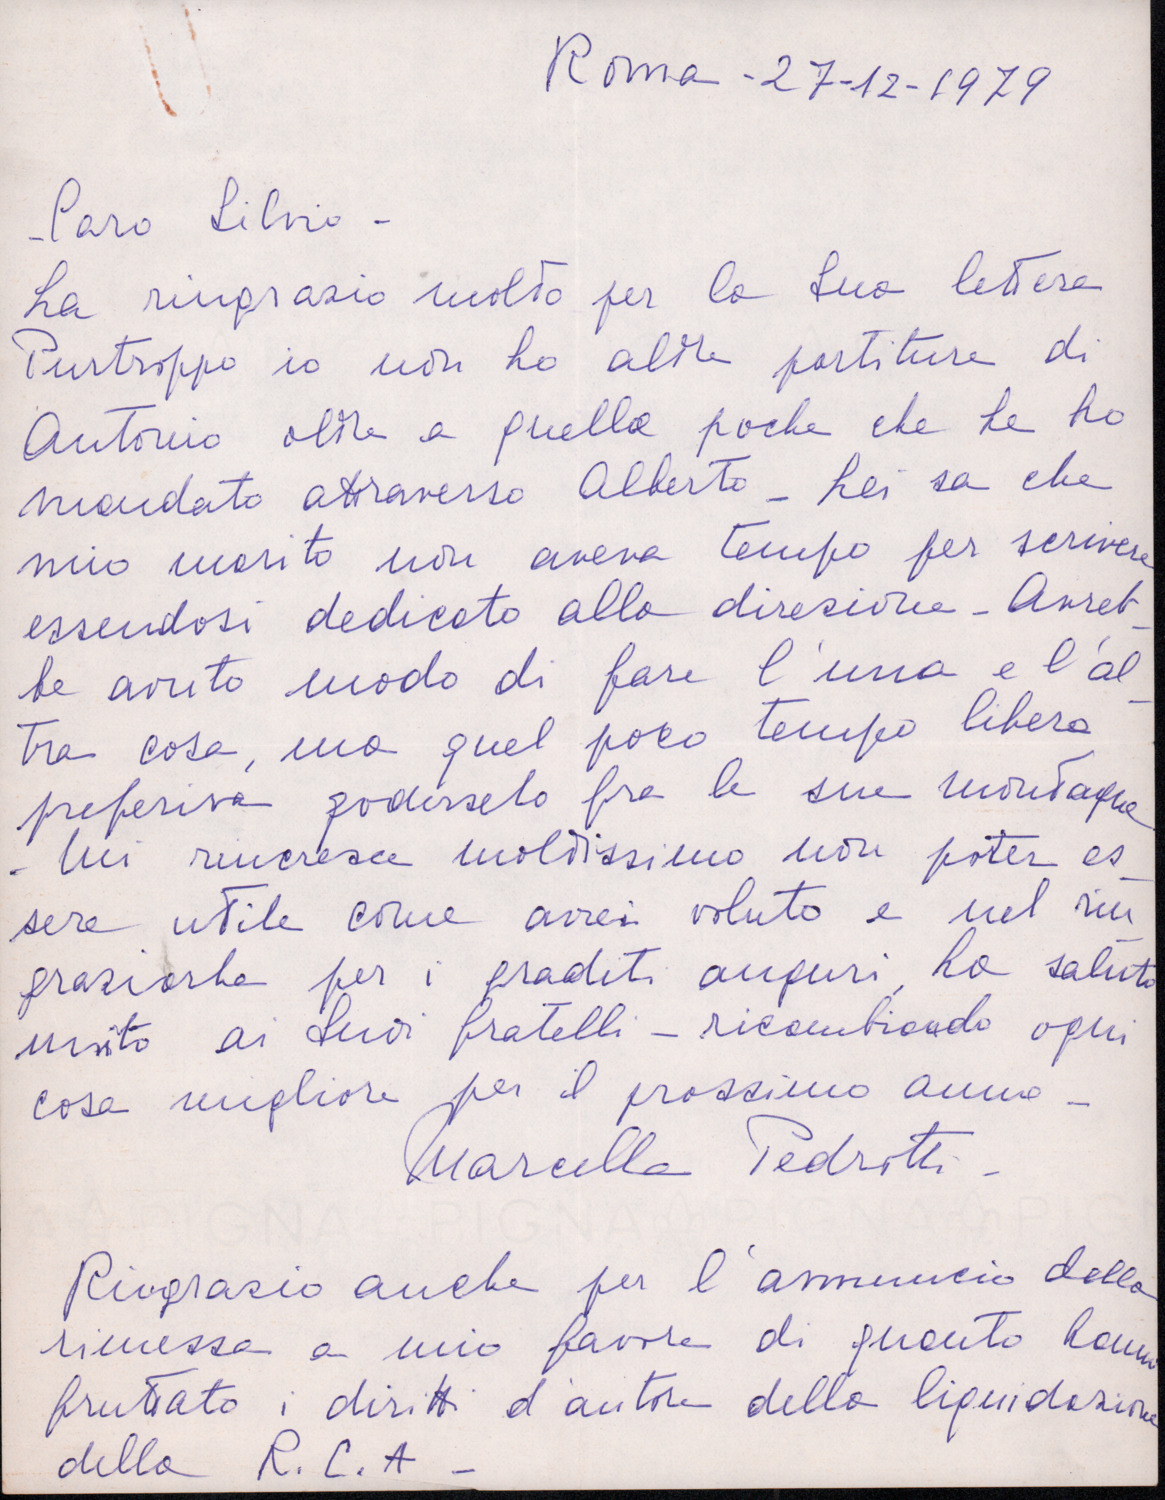 Roma - 27-12-1979
- Caro Silvio -
La ringrazio molto per la Sua lettera
Purtroppo io non ho altre partiture di
Antonio oltre a quelle poche che Le ho
mandato attraverso Alberto - Lei sa che
mio marito non aveva tempo per scrivere
essendosi dedicato alla direzione - Avreb-
be avuto modo di fare l'una e l'al-
tra cosa, ma quel poco tempo libero
preferiva goderselo fra le sue montagne
- Mi rincresce moltissimo non poter es-
sere utile come avrei voluto e nel rin
graziarLa per i graditi auguri, La saluto
unito ai Suoi fratelli - ricambiando ogni
cosa migliore per il prossimo anno -
Marcella Pedrotti -
PIGNA PIGNA PIGNA PIG
Ringrazio anche per l'annuncio della
rimessa a mio favore di quanto hanno
fruttato i diritti d'autore della liquidazione
della R.C.A -